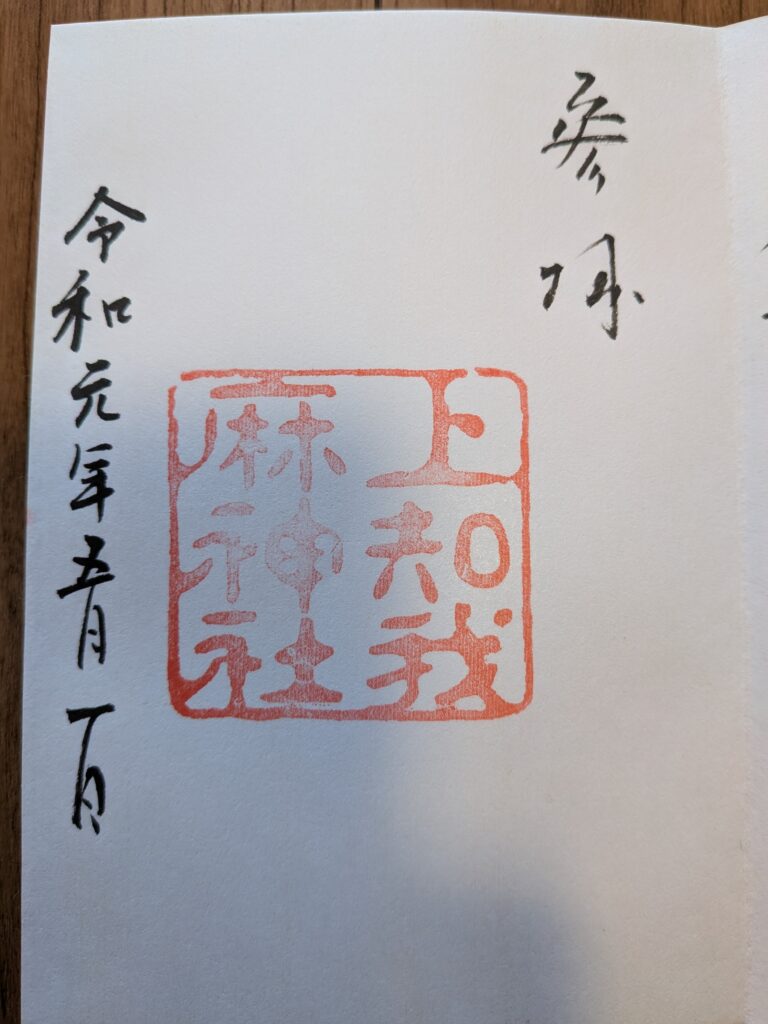 参拝
上知我
麻神社
令和元年五月一日